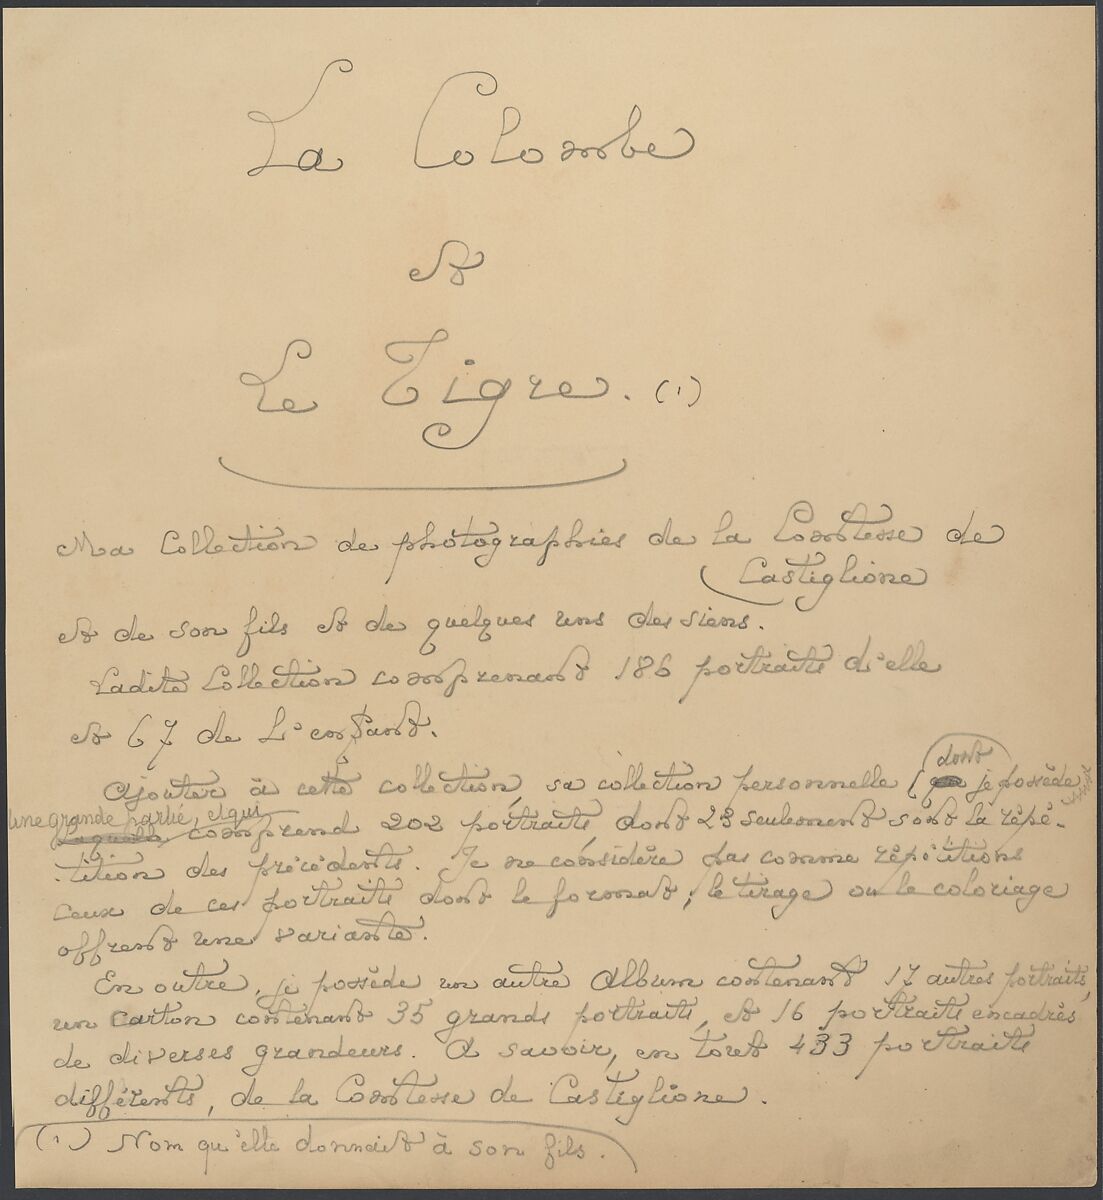 La Colombe
et
Le Tigre. (1)
Ma Collection de photographies de la Comtesse de
Castiglione
et de son fils et de quelques uns des siens.
Ladite Collection comprenant 186 portraits d'elle
et 67 de L'enfant.
Ajouter à cette collection, sa collection personnelle (dont je possède
une grande partie, et qui comprend 202 portraits, dont 23 seulement sont la répé-
tition des précédents. Je ne considère pas comme répétitions
ceux de ces portraits dont le format, le tirage ou le coloriage
offrent une variante.
En outre, je possède un autre Album contenant 17 autres portraits,
un carton contenant 35 grands portraits, et 16 portraits encadrés
de diverses grandeurs. A savoir, en tout 433 portraits
différents, de la Comtesse de Castiglione.
(1) Nom qu'elle donnait à son fils.